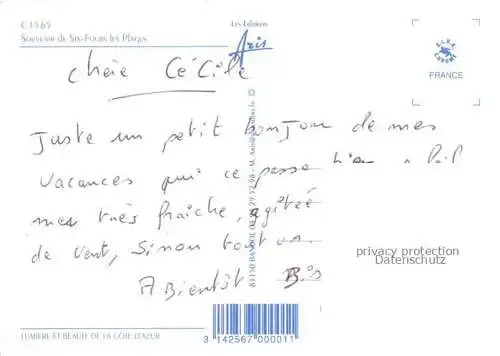 C1565
Souvenir de Six-Fours les Plages
Les Editions
Aris
FRANCE
chère Cécile
Juste un petit bonjour de mes
vacances qui ce passe bien
mer très fraîche, agitée
de vent, sinon tout va.
A Bientôt Bis
privacy protection
Datenschutz
LUMIERE ET BEAUTE DE LA CÔTE D'AZUR
3 142567 000011